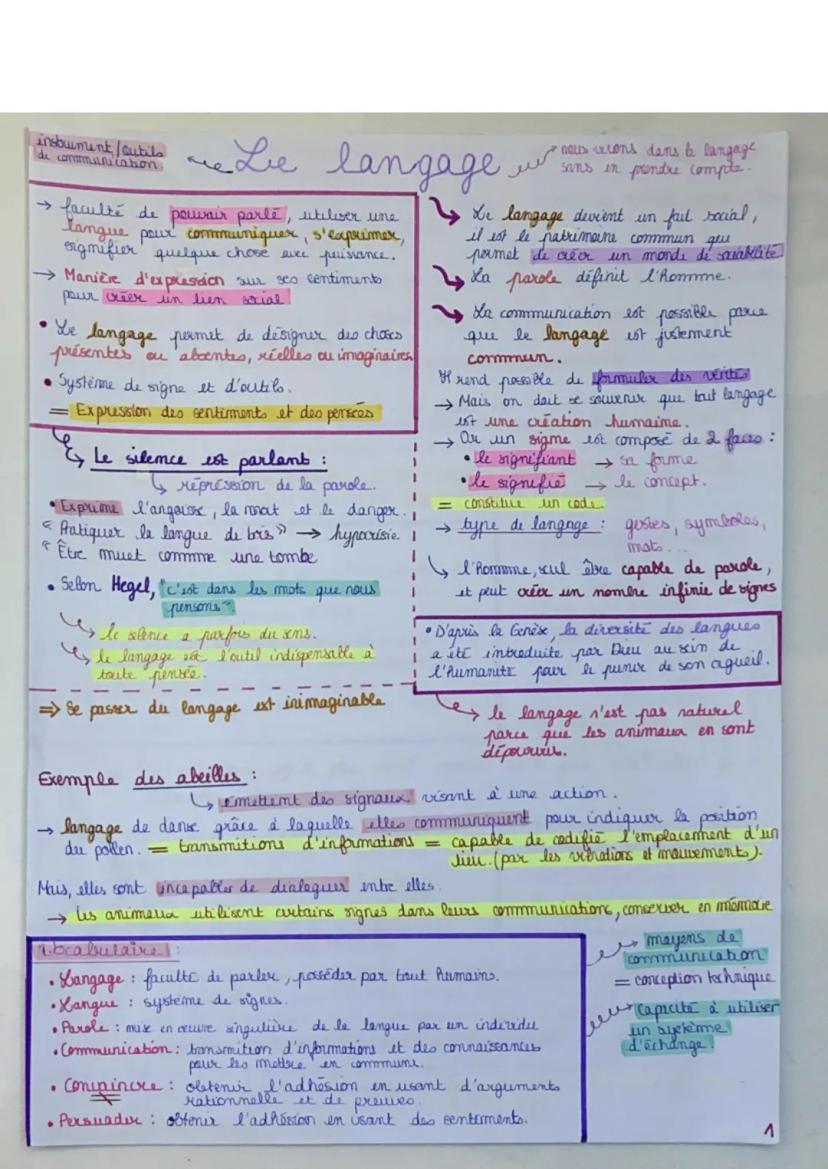 instrument/outils
de communication
Le langage
nous vivons dans le langage
sans en prendre compte.
→ faculté de pouvoir parlé, utiliser une
langue pour communiquer, s'exprimer,
signifier quelque chose avec puissance.
→ Manière d'expression sur ses sentiments
pour créer un lien social
• Le langage permet de désigner des choses
présentes ou absentes, réelles ou imaginaires
• Système de signe et d'outils.
= Expression des sentiments et des pensées
Le silence est parlant :
répression de la parole.
• Exprime l'angoisse, la mort et le danger.
"Pratiquer la langue de bois" → hypocrisie
"Être muet commme une tombe
• Selon Hegel, "c'est dans les mots que nous
pensons".
le silence a parfois du sens.
le langage est l'outil indispensable à
toute pensée.
⇒ Se passer du langage est inimaginable
Le langage devient un fait social,
il est le patrimoine commun qui
permet de créer un monde de sociabilité
La parole définit l'homme.
La communication est possible parce
que le langage est justement
commun.
Il rend possible de formuler des vérités
→ Mais on doit se souvenir que tout langage
est une création humaine.
→ Or un signe est composé de 2 faces :
• le signifiant → sa forme
• le signifié → le concept.
= constitue un code
→ type de langage : gestes, symboles,
mots...
l'homme, seul être capable de parole,
et peut créer un nombre infinie de signes
• D'après la Genèse, la diversité des langues
a été introduite par Dieu au sein de
l'humanité pour le punir de son orgueil.
le langage n'est pas naturel
parce que les animaux en sont
dépourvus.
Exemple des abeilles :
émettent des signaux visant à une action.
→ langage de danse grâce à laquelle elles communiquent pour indiquer la position
du pollen. = transmitions d'informations = capable de codifié l'emplacement d'un
lieu. (par les vibrations et mouvements).
Mais, elles sont incapables de dialoguer entre elles.
→ Les animaux utilisent certains signes dans leurs communications, conserver en mémoire
moyens de
communication
= conception technique
Capacité à utiliser
un système
d'échange.
Vocabulaire :
• Langage : faculté de parler, posséder par tout humains.
• Langue : système de signes.
• Parole : mise en œuvre singulière de la langue par un individu
• Communication : transmition d'informations et des connaissances
pour les mettre en commun.
• Convaincre : obtenir l'adhésion en usant d'arguments
rationnelle et de preuves.
• Persuader : obtenir l'adhésion en usant des sentiments.
1